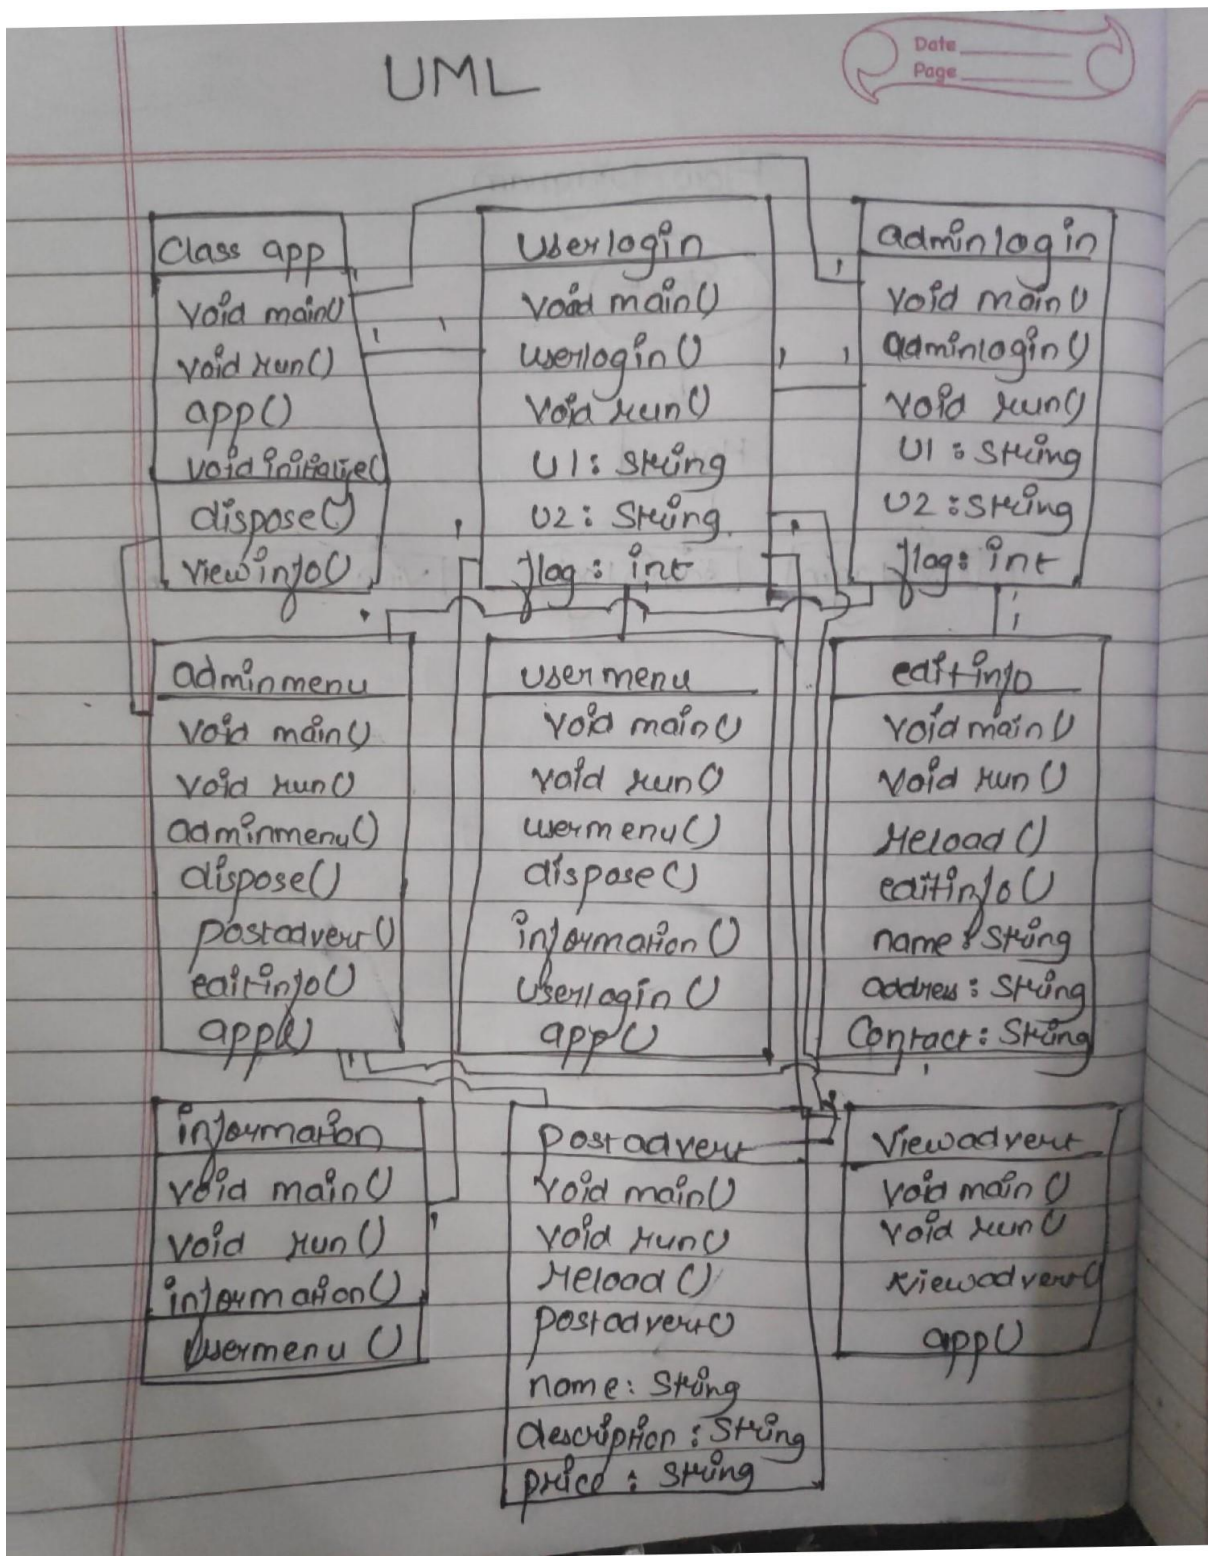 Date
Page
UML
Class app
void main()
void run()
app()
void initialize()
dispose()
viewinfo()
Userlogin
void main()
userlogin()
void run()
U1: String
U2: String
flag: int
adminlogin
void main()
adminlogin()
void run()
U1: String
U2: String
flag: int
adminmenu
void main()
void run()
adminmenu()
dispose()
postadvert()
editinfo()
app()
usermenu
void main()
void run()
usermenu()
dispose()
information()
Userlogin()
app()
editinfo
void main()
void run()
reload()
editinfo()
name: String
address: String
Contact: String
information
void main()
void run()
information()
usermenu()
postadvert
void main()
void run()
reload()
postadvert()
name: String
description: String
price: String
Viewadvert
void main()
void run()
viewadvert()
app()